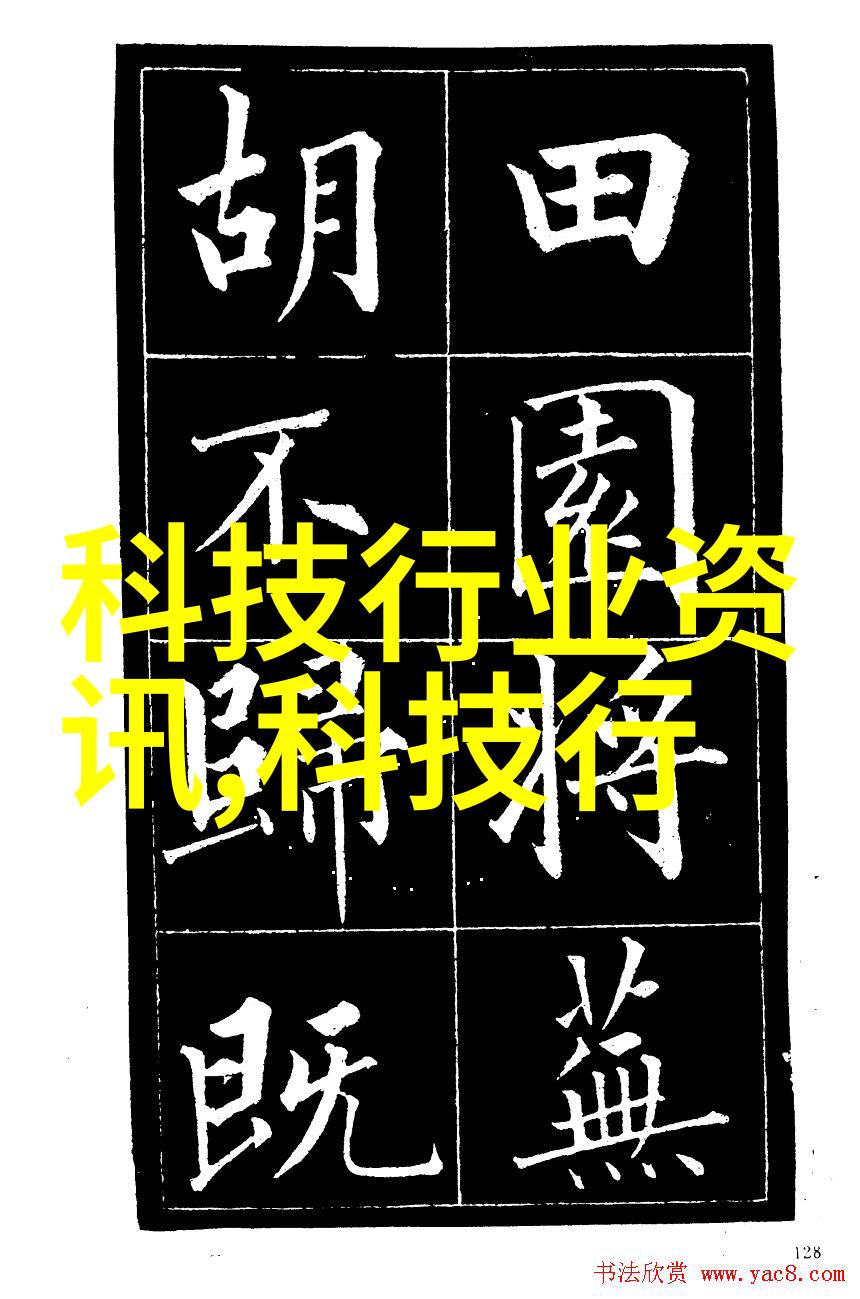 田園将蕪
胡不歸既
科技行业资
讯,科技行
128
书法欣赏 www.yac8.com